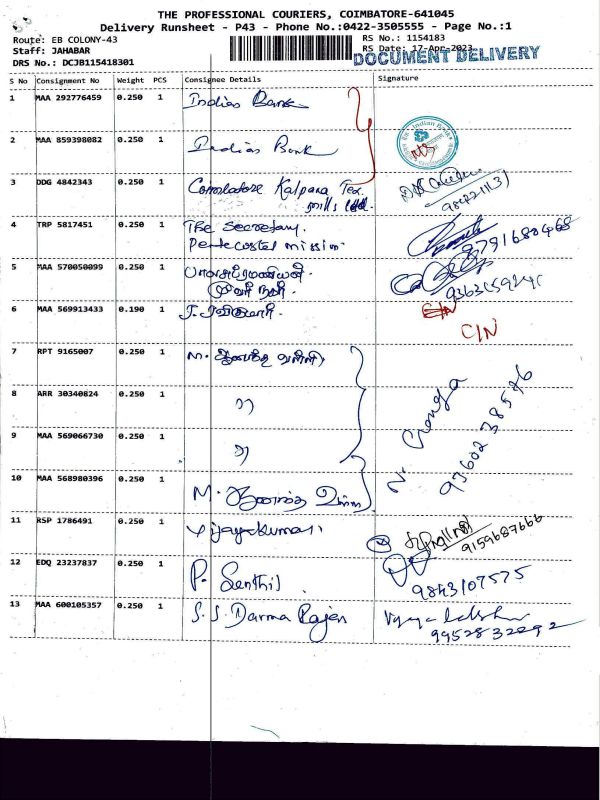 THE PROFESSIONAL COURIERS, COIMBATORE-641045
Delivery Runsheet - P43 - Phone No.:0422-3505555 - Page No.:1
Route: EB COLONY-43
RS No.: 1154183
Staff: JAHABAR
RS Date: 17-Apr-2023
DRS No.: DCJB115418301
DOCUMENT DELIVERY
S No Consignment No Weight PCS Consignee Details Signature
1 MAA 292776459 0.250 1 Indian Bank
2 MAA 859398082 0.250 1 Indian Bank
Indian Bank
3 DDG 4842343 0.250 1 Coimbatore Kalpana Tex
mills
4 TRP 5817451 0.250 1 The Secretary.
Pentecostal mission. 8791680468
5 MAA 570050099 0.250 1 பாலசுப்ரமணியன்.
6 MAA 569913433 0.190 1
C/N
C/N
7 RPT 9165007 0.250 1 M.
8 ARR 30340824 0.250 1 "
9 MAA 569066730 0.250 1 "
93602 38576
10 MAA 568980396 0.250 1 M.
11 RSP 1786491 0.250 1 Vijayakumar.
9159687666
12 EDQ 23237837 0.250 1 P. Senthil
9843107575
13 MAA 600105357 0.250 1 S. S. Darma Rajen
9952832292